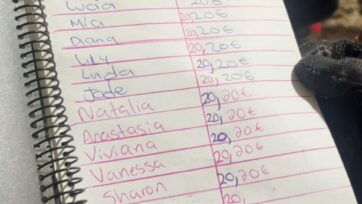 Lucia 20€
Mia 20,20€
Diana 20,20€
Lily 20,20€
Linda 20,20€
Jade 20,20€
Natalia 20,20€
Anastasia 20,20€
Viviana 20,20€
Vanessa 20,20€
Sharon 20,